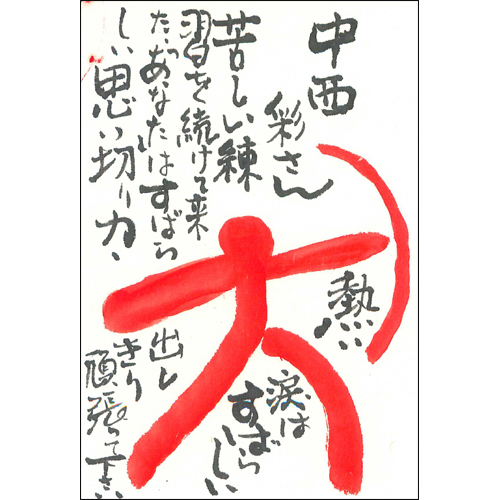 中西
彩さん
苦しい練
習を続けて来
たあなたはすばら
しい思い切り力、
出し
きり
頑張って下さい
熱い
涙は
すばら
しい